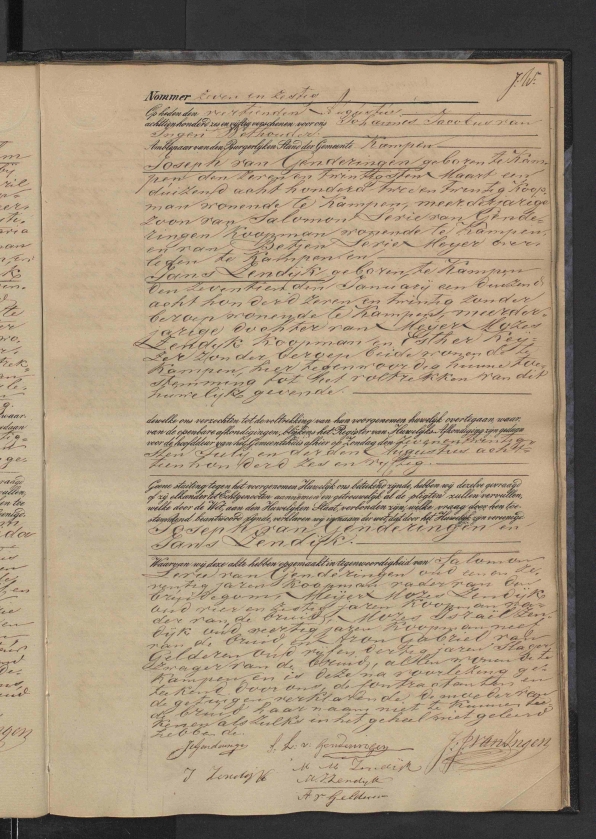 J. W.
Nommer zeven en zestig
Op heden den veertienden Augustus
achttienhonderd zes en vijftig verschenen voor ons Johannes Jacobus van
Ingen Wethouder
Ambtenaar van den Burgerlijken Stand der Gemeente Kampen
Joseph van Genderingen geboren te Kam-
pen den zeven en twintigsten Maart een
duizend acht honderd twee en twintig Koop-
man wonende te Kampen, meerderjarige
zoon van Salomon Serie van Gende-
ringen Koopman wonende te Kampen,
en van Betjen Serie Meyer over-
leden te Kampen en
Sans Zendijk geboren te Kampen
den zeventienden Januarij een duizend
acht honderd zeven en twintig zonder
beroep wonende te Kampen, meerder-
jarige dochter van Meyer Mozes
Zendijk Koopman en Esther Key-
zer zonder beroep beide wonende te
Kampen, hier tegenwoordig hunne toe-
stemming tot het voltrekken van dit
huwelijk gevende
dewelke ons verzochten tot de voltrekking van hun voorgenomen huwelijk overtegaan, waar-
van de openbare afkondigingen, blijkens het Register van Huwelijks-Afkondiging gedaan
voor de hoofddeur van het Gemeentehuis alhier op Zondag den zeven en twintig-
sten Julij en derden Augustus acht-
tien honderd zes en vijftig
Geene stuiting tegen het voorgenomen Huwelijk ons bekend zijnde, hebben wij dezelve gevraagd
of zij elkander tot Echtgenooten aannemen en getrouwelijk al de pligten zullen vervullen,
welke door de Wet, aan den Huwelijken Staat verbonden zijn; welke vraag door hen toe-
stemmend beantwoord zijnde, verklaren wij in naam der wet, dat door het Huwelijk zijn vereenigd
Joseph van Genderingen en
Sans Zendijk.
Waarvan wij deze akte hebben opgemaakt in tegenwoordigheid van Salomon
Serie van Genderingen oud een en ze-
ventig jaren Koopman vader van den
bruidegom, Meijer Mozes Zendijk
oud vier en zestig jaren Koopman va-
der van de bruid, Mozes Israel Zen-
dijk oud veertig jaren Koopman neef
van de bruid en Aron Gabriel van
Gelderen oud vijf en dertig jaren Slager
zwager van de bruid, allen wonende te
Kampen en is deze na voorlezing ge-
teekend door ons, de contractanten en
de getuigen verklarende de moeder van
de bruid haar naam niet te kunnen tee-
kenen als zulks in het geheel niet geleerd
hebbende
J Genderingen S. S. v. Genderingen J: J: van Ingen
J Zendijk M M Zendijk
M I Zendijk
A v Gelderen